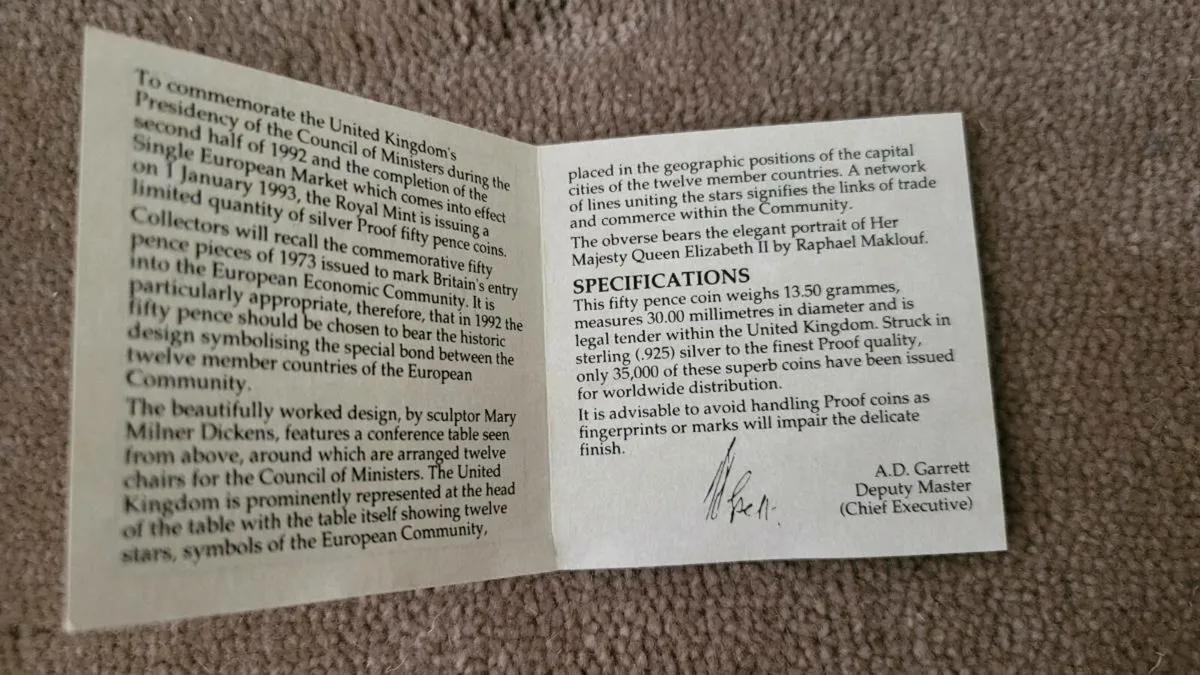 To commemorate the United Kingdom's
Presidency of the Council of Ministers during the
second half of 1992 and the completion of the
Single European Market which comes into effect
on 1 January 1993, the Royal Mint is issuing a
limited quantity of silver Proof fifty pence coins.
Collectors will recall the commemorative fifty
pence pieces of 1973 issued to mark Britain's entry
into the European Economic Community. It is
particularly appropriate, therefore, that in 1992 the
fifty pence should be chosen to bear the historic
design symbolising the special bond between the
twelve member countries of the European
Community.
The beautifully worked design, by sculptor Mary
Milner Dickens, features a conference table seen
from above, around which are arranged twelve
chairs for the Council of Ministers. The United
Kingdom is prominently represented at the head
of the table with the table itself showing twelve
stars, symbols of the European Community,
placed in the geographic positions of the capital
cities of the twelve member countries. A network
of lines uniting the stars signifies the links of trade
and commerce within the Community.
The obverse bears the elegant portrait of Her
Majesty Queen Elizabeth II by Raphael Maklouf.
SPECIFICATIONS
This fifty pence coin weighs 13.50 grammes,
measures 30.00 millimetres in diameter and is
legal tender within the United Kingdom. Struck in
sterling (.925) silver to the finest Proof quality,
only 35,000 of these superb coins have been issued
for worldwide distribution.
It is advisable to avoid handling Proof coins as
fingerprints or marks will impair the delicate
finish.
A.D. Garrett
Deputy Master
(Chief Executive)